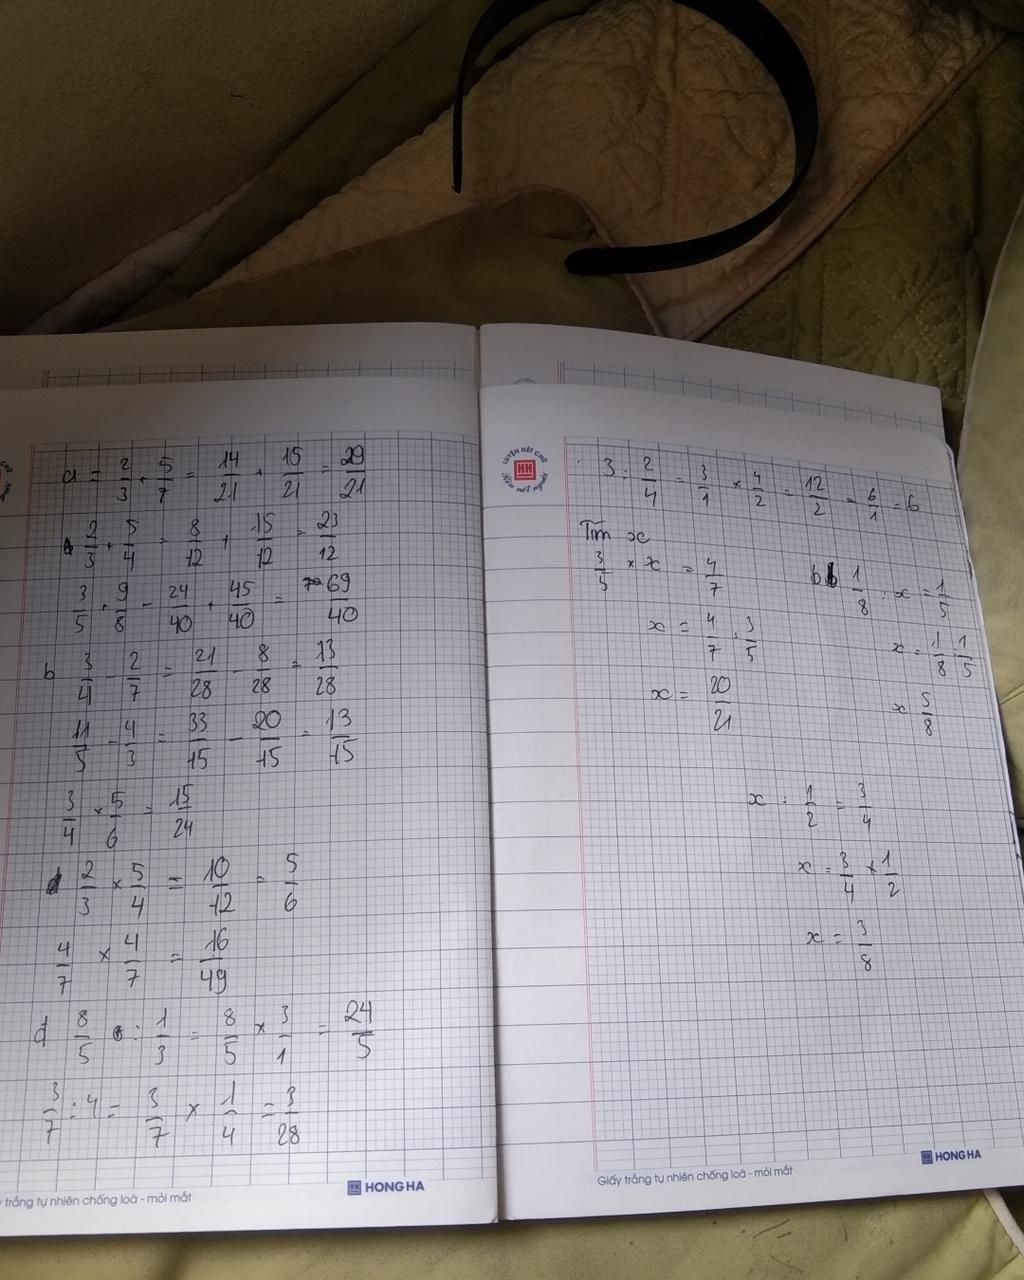 a = 2/3 + 5/7 = 14/21 + 15/21 = 29/21
2/3 + 5/4 = 8/12 + 15/12 = 23/12
3/5 + 9/8 = 24/40 + 45/40 = 69/40
b 3/4 - 2/7 = 21/28 - 8/28 = 13/28
11/5 - 4/3 = 33/15 - 20/15 = 13/15
3/4 × 5/6 = 15/24
2/3 × 5/4 = 10/12 = 5/6
4/7 × 4/7 = 16/49
d 8/5 : 1/3 = 8/5 × 3/1 = 24/5
3/7 : 4 = 3/7 × 1/4 = 3/28
trắng tự nhiên chống loá - mỏi mắt
HONG HA
LUYỆN NÉT CHỮ
Rèn nết người
3 : 2/4 = 3/1 × 4/2 = 12/2 = 6/1 = 6
Tìm x
3/5 × x = 4/7
x = 4/7 : 3/5
x = 20/21
b 1/8 : x = 1/5
x = 1/8 : 1/5
x 5/8
x : 1/2 = 3/4
x = 3/4 × 1/2
x = 3/8
Giấy trắng tự nhiên chống loá - mỏi mắt
HONG HA